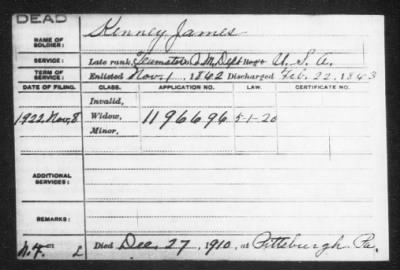 DEAD
NAME OF SOLDIER: Kenney James
SERVICE: Late rank, Teamster Q.M. Dept Reg't U. S. A.
TERM OF SERVICE: Enlisted Nov. 1, 1842 Discharged Feb. 22, 1843
DATE OF FILING. CLASS. APPLICATION NO. LAW. CERTIFICATE NO.
Invalid,
1922 Nov, 8 Widow, 1196696 5-1-20
Minor,
ADDITIONAL SERVICES:
REMARKS:
Died Dec. 27, 1910, at Pittsburgh Pa.